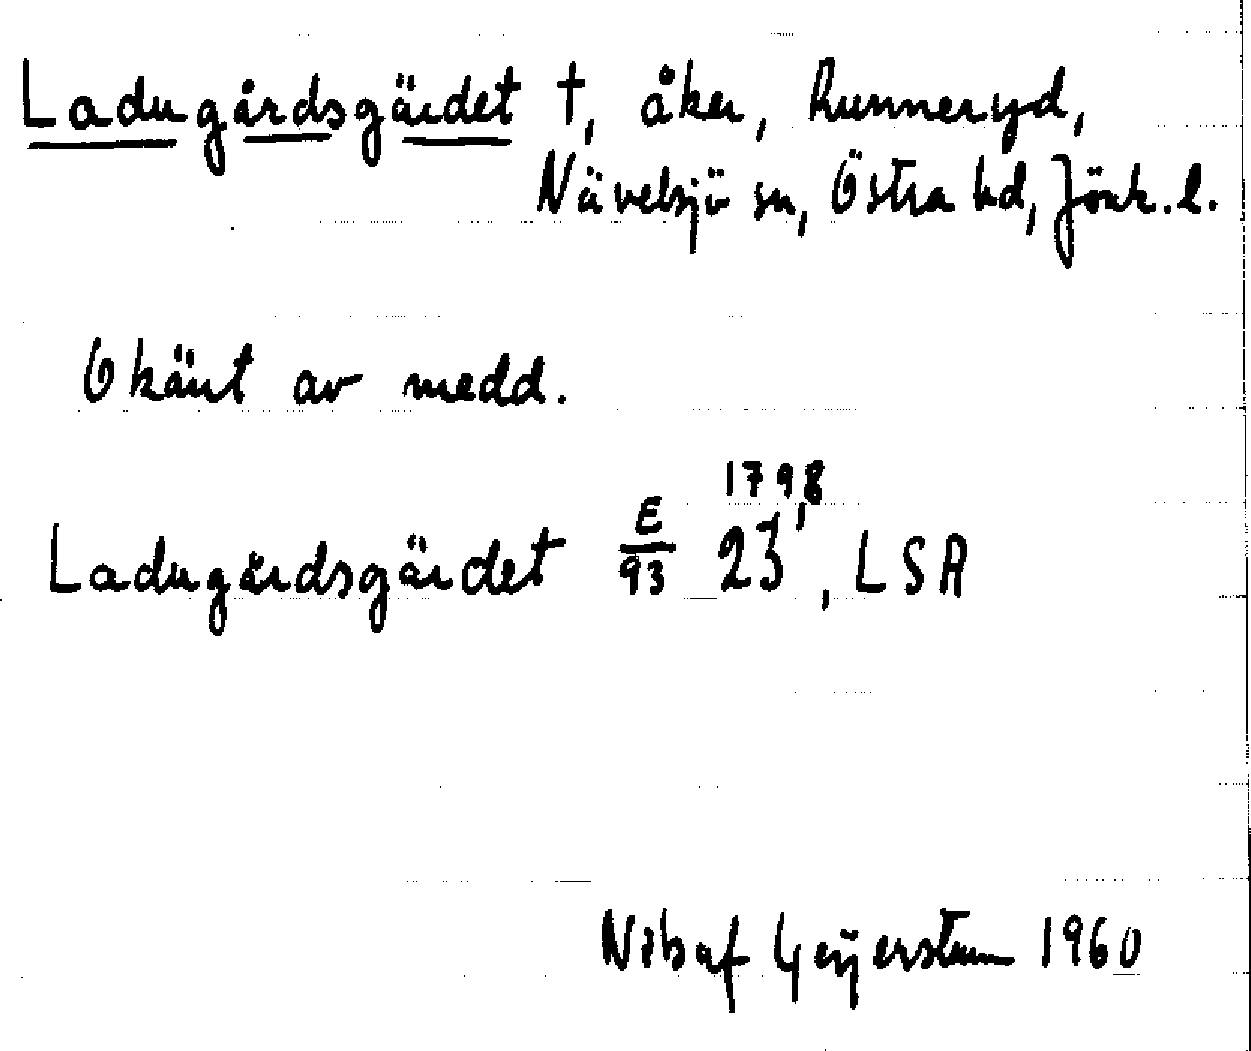 Ladugårdsgärdet †, åker, Runneryd,
Nävelsjö sn, Östra hd, Jönk. l.
Okänt av medd.
Ladugårdsgärdet E/93 23, 1798, LSA
Nils af Geijerstam 1960